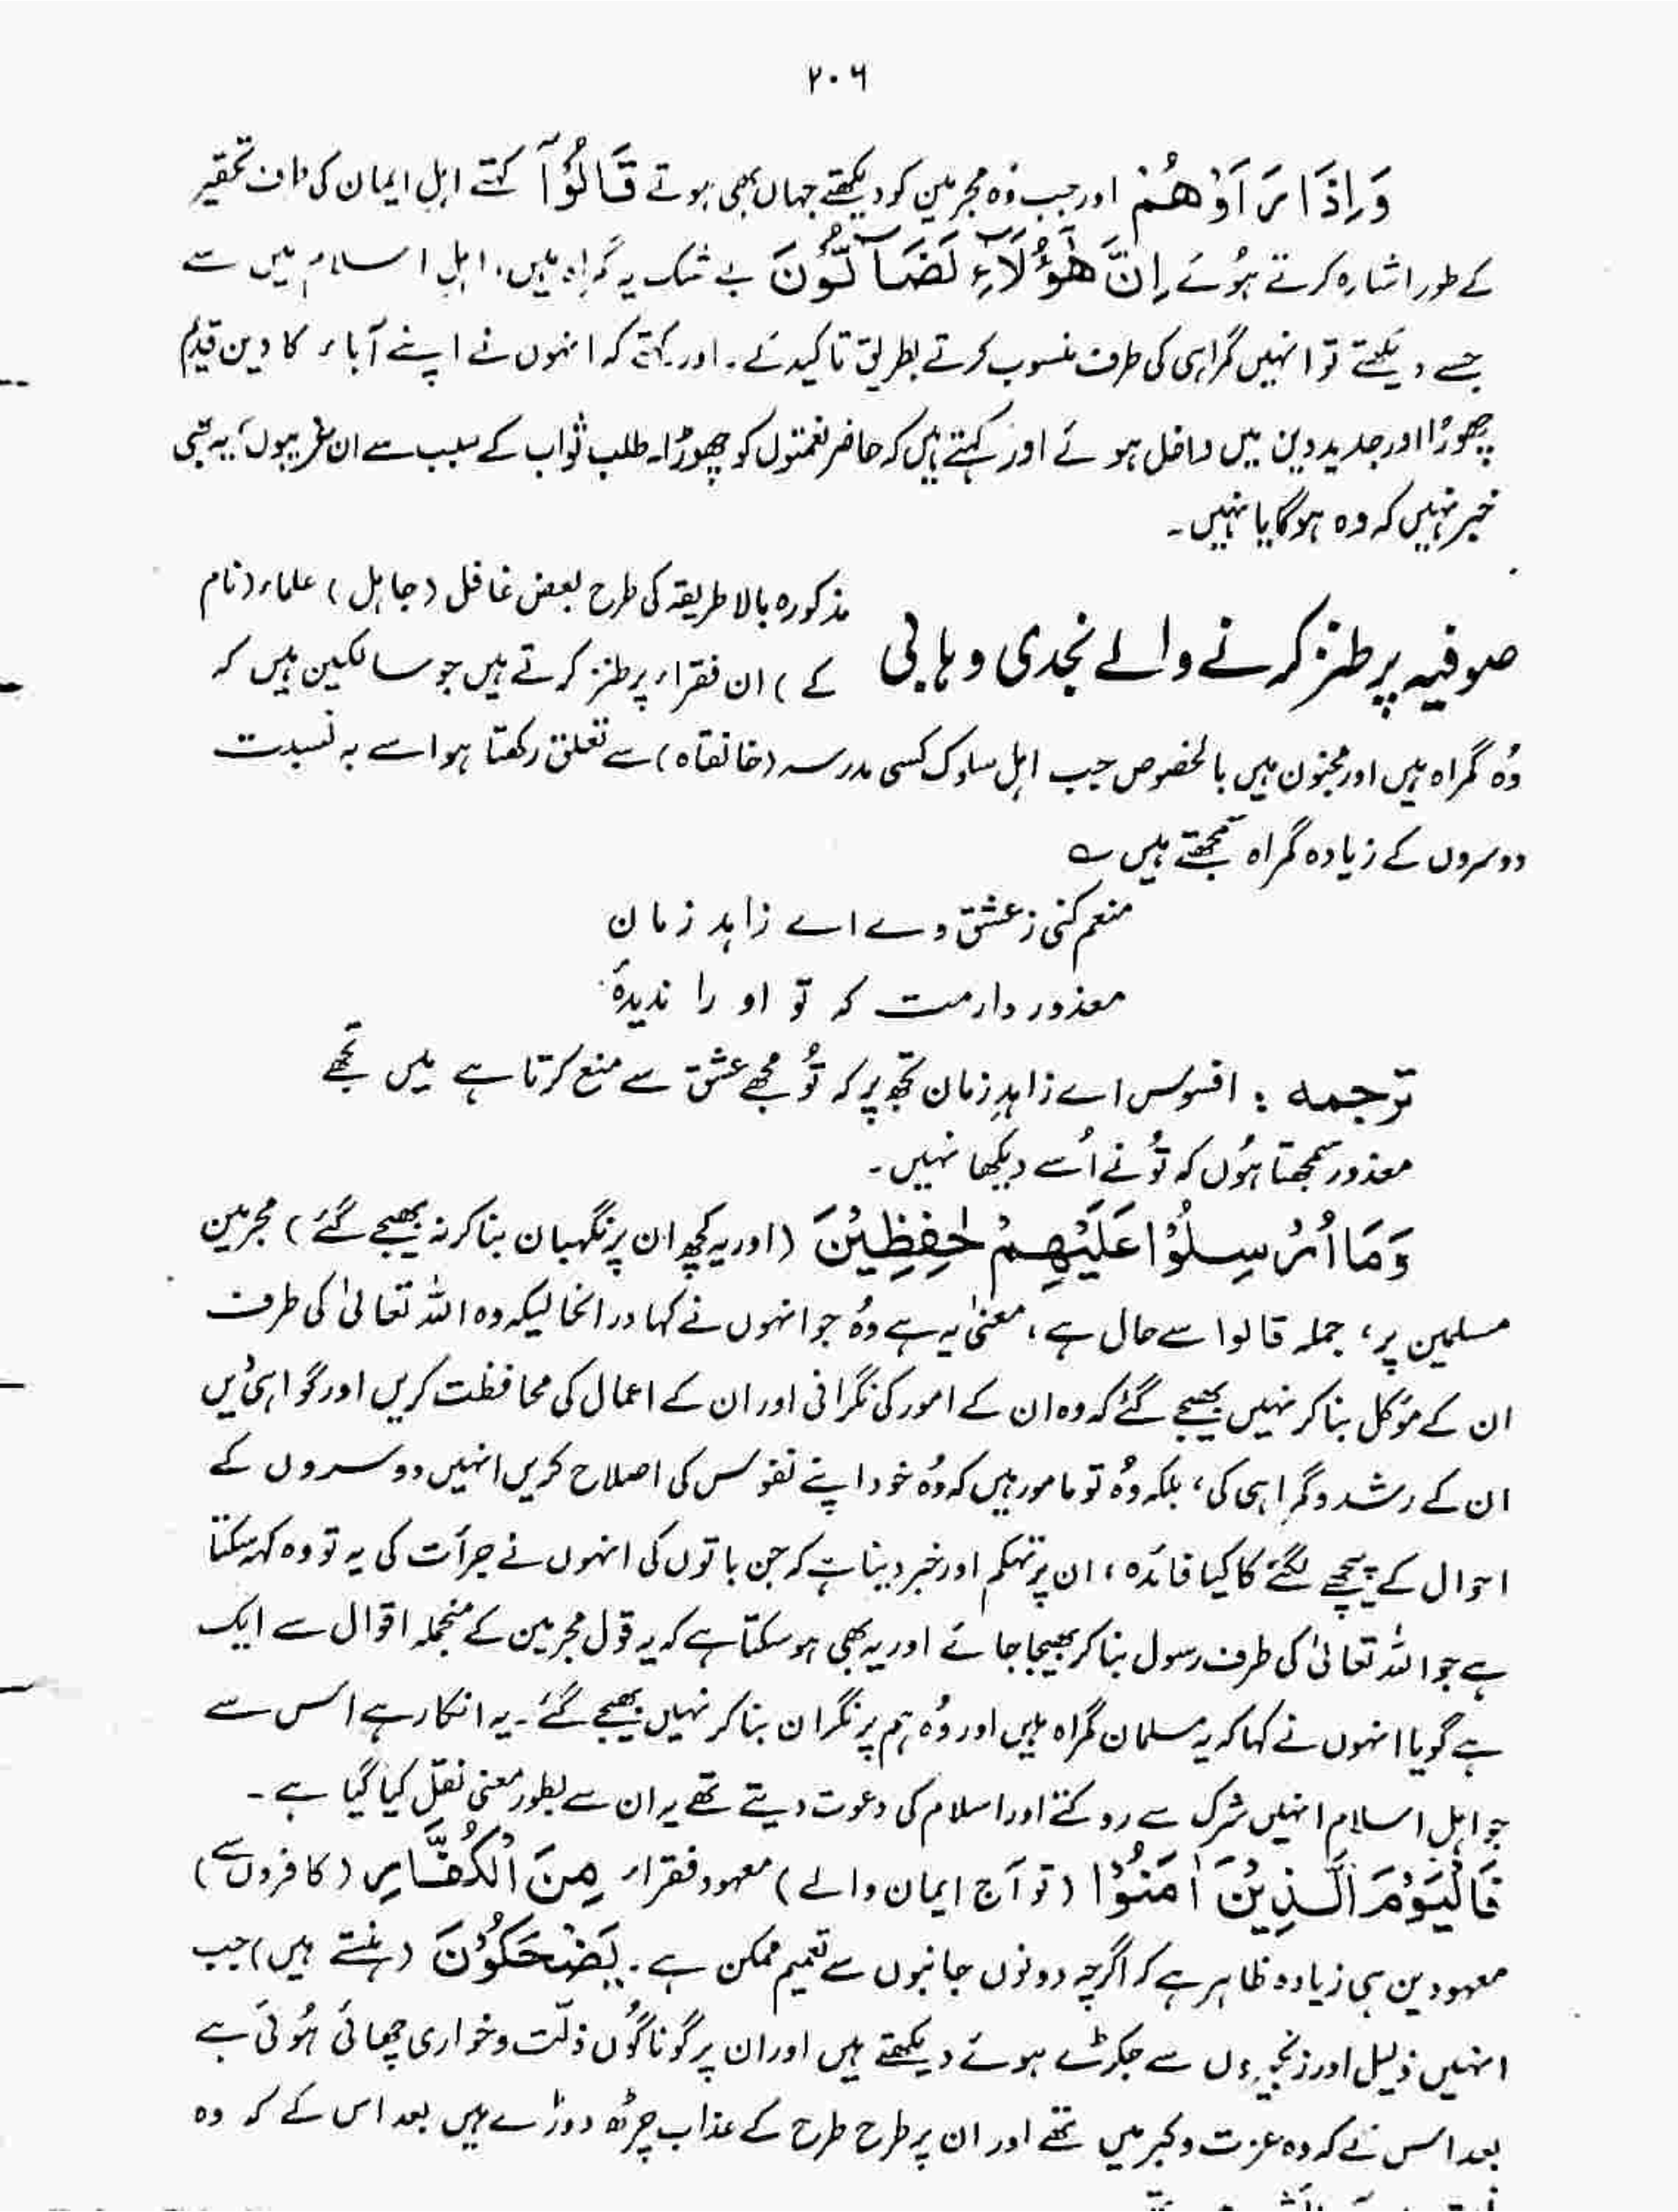 ۲۰۶
وَاِذَا رَاَوْهُمْ اور جب وُہ مجرمین کو دیکھتے جہاں بھی ہوتے قَالُوْٓا کہتے اہلِ ایمان کی طرف تحقیر
کے طور اشارہ کرتے ہُوئے اِنَّ هٰٓؤُلَآءِ لَضَآلُّوْنَ بے شک یہ گمراہ ہیں، اہلِ اسلام میں سے
جسے دیکھتے تو انہیں گمراہی کی طرف منسوب کرتے بطریق تاکید کے۔ اور کہتے کہ انہوں نے اپنے آباء کا دین قدیم
چھوڑا اور جدید دین میں داخل ہوئے اور کہتے ہیں کہ حاضر نعمتوں کو چھوڑا۔ طلب ثواب کے سبب سے ان غریبوں کو یہ بھی
خبر نہیں کہ وہ ہوگا یا نہیں۔
صوفیہ پر طنز کرنے والے نجدی وہابی مذکورہ بالا طریقہ کی طرح بعض غافل (جاہل) علماء (نام
کے) ان فقراء پر طنز کرتے ہیں جو سالکین ہیں کہ
وُہ گمراہ ہیں اور مجنون ہیں بالخصوص جب اہل سلوک کسی مدرسہ (خانقاہ) سے تعلق رکھتا ہو اسے بہ نسبت
دوسروں کے زیادہ گمراہ سمجھتے ہیں ؎
منعم کنی ز عشق وے اے زاہد زمان
معذور دارمت کہ تو او را ندیدۂ
ترجمہ : افسوس اے زاہدِ زمان تجھ پر کہ تُو مجھے عشق سے منع کرتا ہے میں تجھے
معذور سمجھتا ہُوں کہ تُو نے اُسے دیکھا نہیں۔
وَمَا اُرْسِلُوْا عَلَيْهِمْ حٰفِظِيْنَ (اور یہ کچھ ان پر نگہبان بنا کر نہ بھیجے گئے) مجرمین
مسلمین پر، جملہ قالوا سے حال ہے، معنٰی یہ ہے وُہ جو انہوں نے کہا درانحالیکہ وہ اللہ تعالیٰ کی طرف
ان کے مؤکل بنا کر نہیں بھیجے گئے کہ وہ ان کے امور کی نگرانی اور ان کے اعمال کی محافظت کریں اور گواہی دیں
ان کے رشد و گمراہی کی، بلکہ وُہ تو مامور ہیں کہ وُہ خود اپنے نفوس کی اصلاح کریں انہیں دوسروں کے
احوال کے پیچھے لگنے کا کیا فائدہ، ان پر تہکم اور خبر دینا ہے کہ جن باتوں کی انہوں نے جرأت کی یہ تو وہ کہہ سکتا
ہے جو اللہ تعالیٰ کی طرف رسول بنا کر بھیجا جائے اور یہ بھی ہو سکتا ہے کہ یہ قول مجرمین کے منجملہ اقوال سے ایک
ہے گویا انہوں نے کہا کہ یہ مسلمان گمراہ ہیں اور وُہ ہم پر نگران بنا کر نہیں بھیجے گئے۔ یہ انکار ہے اس سے
جو اہلِ اسلام انہیں شرک سے روکتے اور اسلام کی دعوت دیتے تھے یہ ان سے بطور معنی نقل کیا گیا ہے۔
فَالْيَوْمَ الَّذِيْنَ اٰمَنُوْا (تو آج ایمان والے) معہود فقراء مِنَ الْكُفَّارِ (کافروں سے)
معہودین ہی زیادہ ظاہر ہے کہ اگرچہ دونوں جانبوں سے تعمیم ممکن ہے۔ يَضْحَكُوْنَ (ہنستے ہیں) جب
انہیں ذلیل اور زنجیروں سے جکڑے ہوئے دیکھتے ہیں اور ان پر گوناگُوں ذلّت و خواری چھائی ہُوئی ہے
بعد اس کے کہ وہ عزت و کبر میں تھے اور ان پر طرح طرح کے عذاب چڑھ دوڑے ہیں بعد اس کے کہ وہ